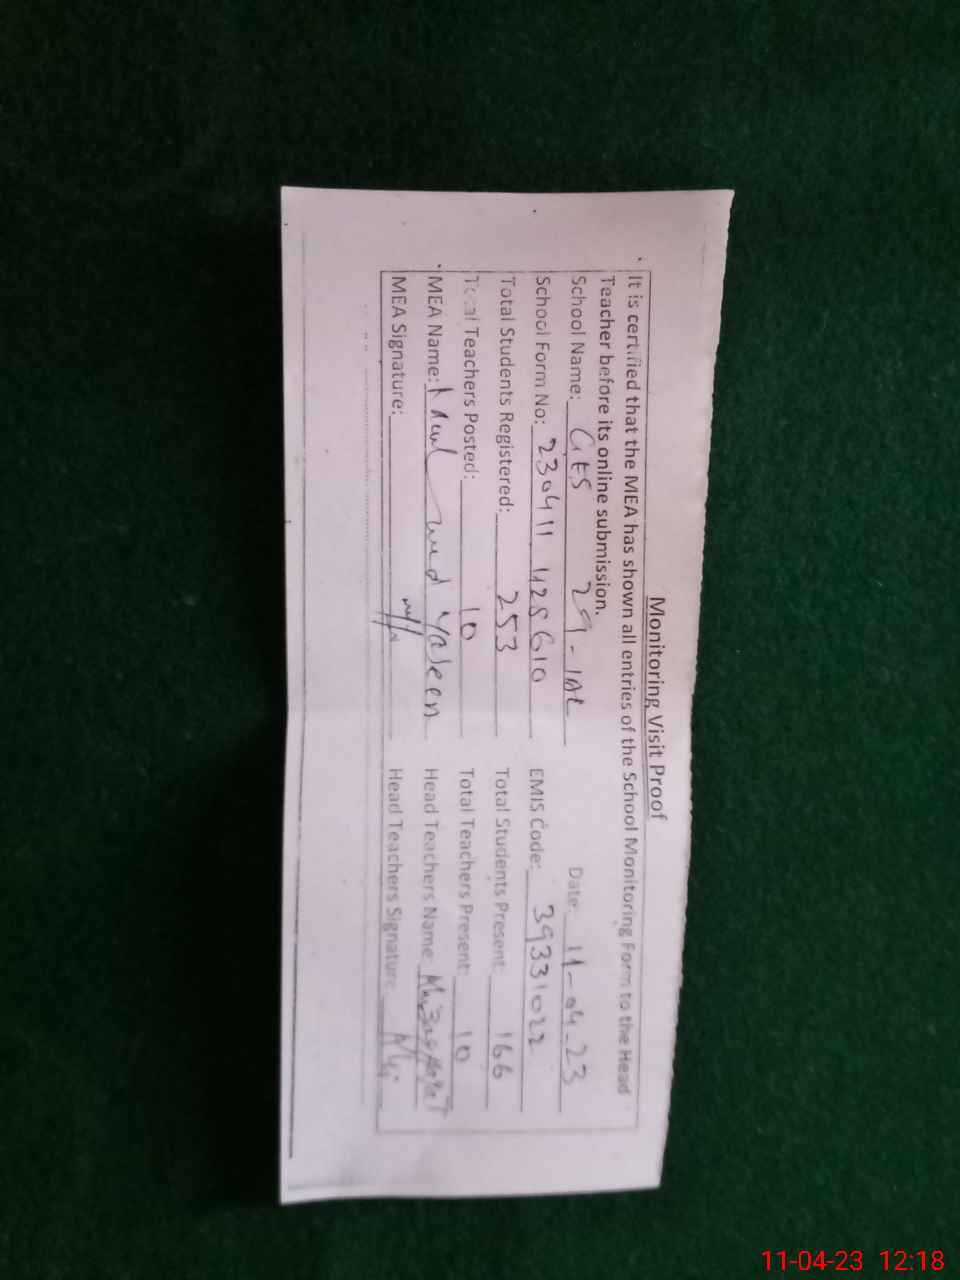 Monitoring Visit Proof
It is certified that the MEA has shown all entries of the School Monitoring Form to the Head
Teacher before its online submission.
School Name: GES 29-10L Date: 11-04-23
School Form No: 230411 428610 EMIS Code: 39331022
Total Students Registered: 253 Total Students Present: 166
Total Teachers Posted: 10 Total Teachers Present: 10
MEA Name: Yaseen Head Teachers Name:
MEA Signature: Head Teachers Signature:
11-04-23 12:18